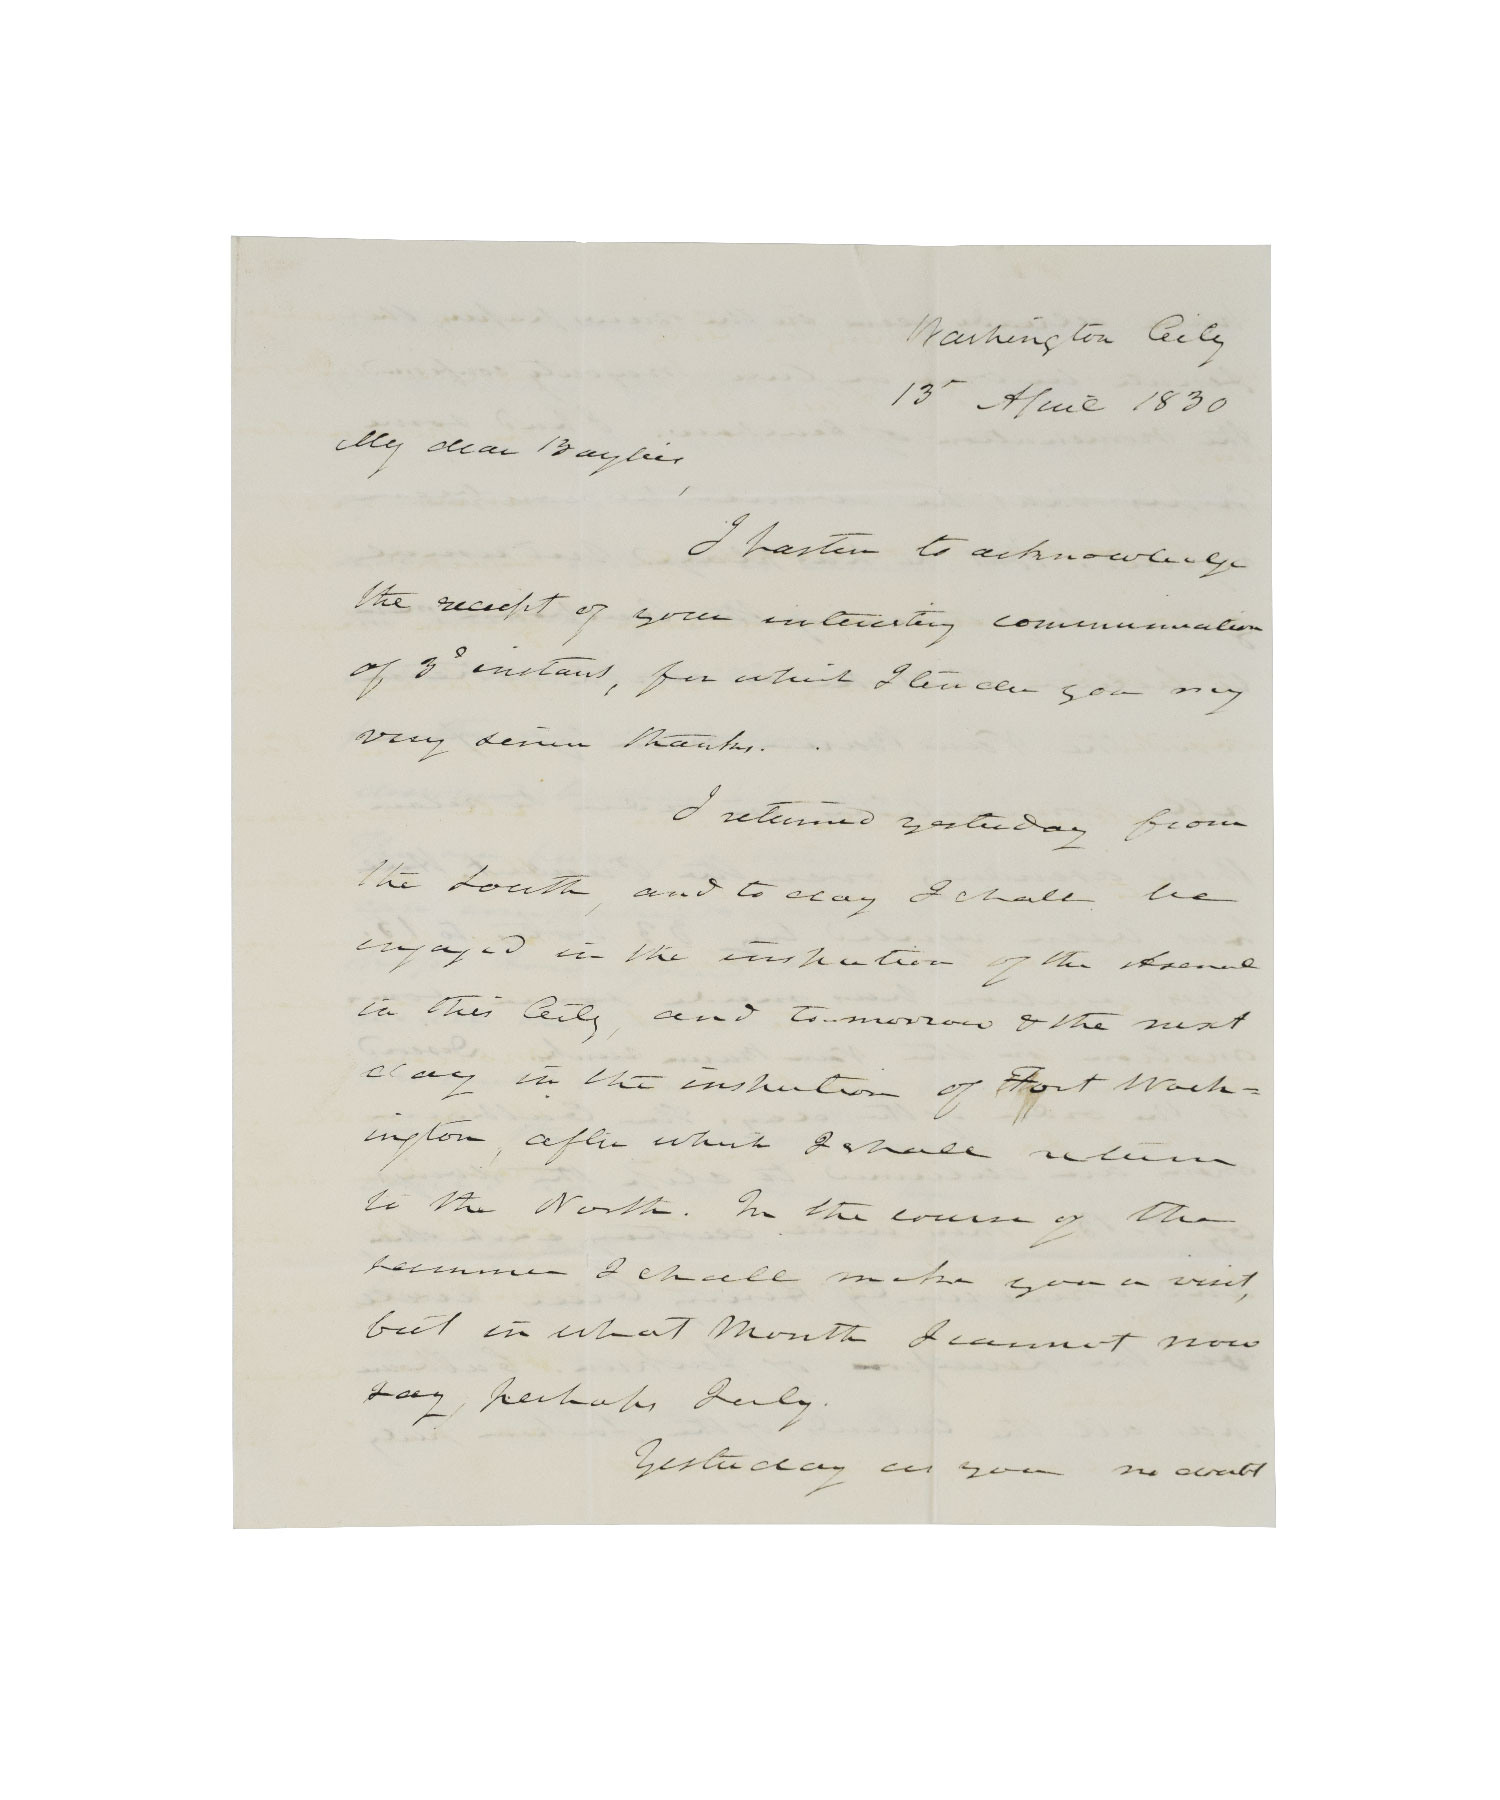 Washington City
13 April 1830
My dear Baylies,
I hasten to acknowledge
the receipt of your interesting communication
of 3d instant, for which I tender you my
very sincere thanks.
I returned yesterday from
the South, and to day I shall be
engaged in the inspection of the Arsenal
in this City, and to-morrow & the next
day in the inspection of Fort Wash=
ington, after which I shall return
to the North. In the course of the
summer I shall make you a visit,
but in what Month I cannot now
say, perhaps July.
Yesterday as you no doubt